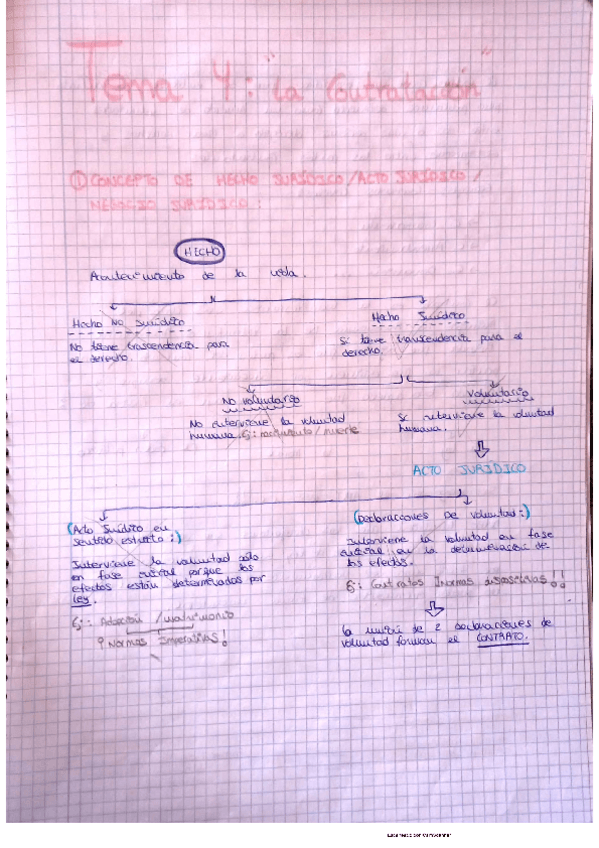 Tema 4: "La Contratación"
① CONCEPTO DE HECHO JURÍDICO / ACTO JURÍDICO /
NEGOCIO JURÍDICO:
HECHO
Acontecimiento de la vida.
Hecho No Jurídico
No tiene trascendencia para
el derecho.
Hecho Jurídico
Si tiene transcendencia para el
derecho.
No voluntario
No interviene la voluntad
humana. Ej: nacimiento / muerte
Voluntario
Si interviene la voluntad
humana.
ACTO JURÍDICO
(Acto Jurídico en
sentido estricto:)
Interviene la voluntad sólo
en fase inicial porque los
efectos están determinados por
Ley.
Ej: Adopción / matrimonio
Normas Imperativas!
(Declaraciones De voluntad:)
Interviene la voluntad en fase
inicial en la determinación de
los efectos.
Ej: Contratos Normas dispositivas!
La unión de 2 declaraciones de
voluntad forman el CONTRATO.